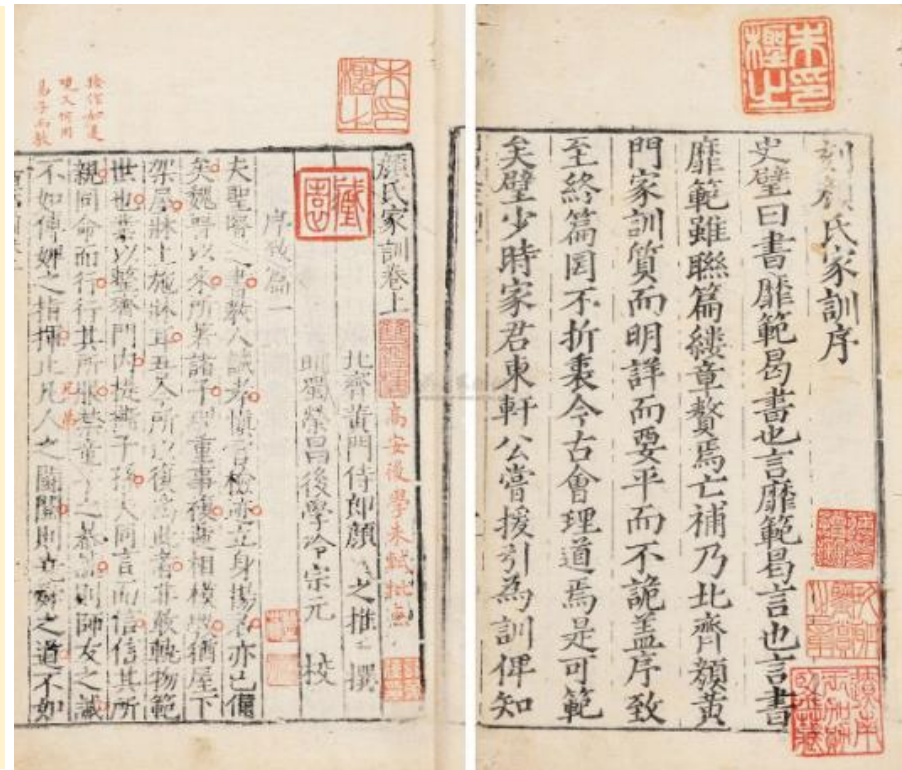 刻顏氏家訓序
史壁曰書靡範曷書也言靡範曷言也言書
靡範雖聯篇縷章贅焉亡補乃北齊顏黃
門家訓質而明詳而要平而不詭盖序致
至終篇罔不折衷今古會理道焉是可範
矣壁少時家君東軒公嘗援引為訓俾知
顏氏家訓卷上
北齊黃門侍郎顏之推撰
明蜀榮昌後學冷宗元校
高安後學朱軾批點
序致篇一
夫聖賢之書教人誠孝慎言檢迹立身揚名亦已備
矣魏晉以來所著諸子理重事複遞相模斆猶屋下
架屋牀上施牀耳吾今所以復為此者非敢軌物範
世也業以整齊門內提撕子孫夫同言而信信其所
親同命而行行其所服禁童之暴謔則師友之誡
不如傅婢之指揮止凡人之鬪鬩則堯舜之道不如
兄弟
易子而教